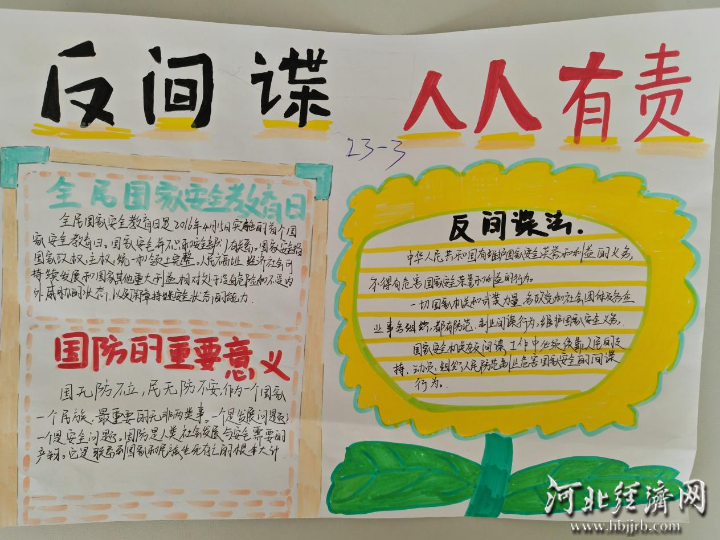 反间谍 人人有责
23-3
全民国家安全教育日
全民国家安全教育日是2016年4月15日实施的首个国
家安全教育日。国家安全并不只和安全部门有关系。国家安全指
国家政权、主权、统一和领土完整、人民福祉、经济社会可
持续发展和国家其他重大利益相对处于没有危险和不受内
外威胁的状态,以及保障持续安全状态的能力.
国防的重要意义
国无防不立,民无防不安,作为一个国家
一个民族,最重要的无非两类事。一个是发展问题
一个是安全问题。国防是人类社会发展与安全需要的
产物,它是联系到国家和民族生死存亡的根本大计
反间谍法.
中华人民共和国有维护国家安全荣誉和利益的义务,
不得有危害国家安全荣誉和利益的行为。
一切国家机关和武装力量、各政党和社会团体及各企
业事务组织,都有防范、制止间谍行为,维护国家安全义务.
国家安全机关在反间谍工作中必须依靠人民的支
持,动员、组织人民防范制止危害国家安全的间谍
行为。
河北经济网
www.hbjjrb.com